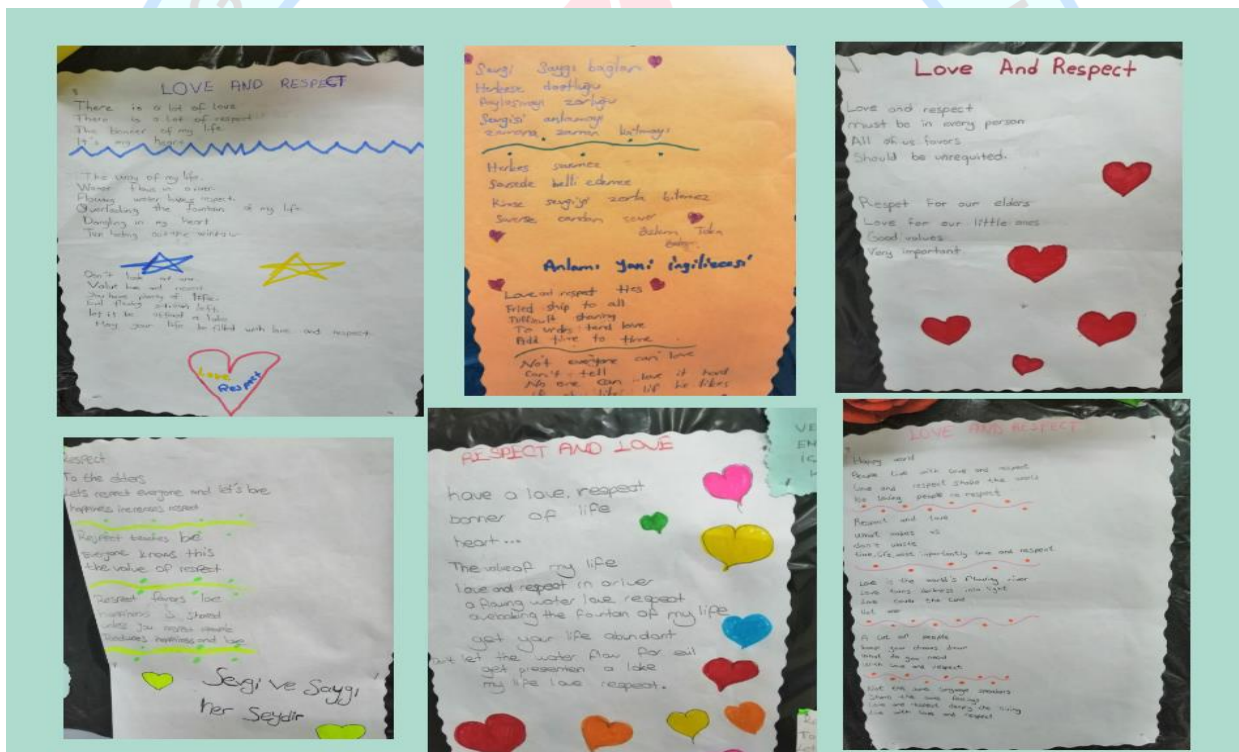 LOVE AND RESPECT
There is a lot of love
There is a lot of respect
The banner of my life
It's my heart
The way of my life.
Water flows in a river
Flowing water love, respect.
Overlooking the fountain of my life
Dangling in my heart
out of the window
Don't look at me
Value love and respect
You have plenty of life.
Evil flowing left.
let it be a lake
May your life be filled with love and respect.
Love
Respect
Sevgi Saygı bağları
Herkese dostluğu
Paylaşmayı zorluğu
Sevgisi anlamayı
zamana zaman katmayı
Herkes sevmez
Sevsede belli edemez
Kimse sevgiyi zorla bilemez
Severse candan sever
Anlamı yani ingilizcesi
Love and respect ties
Fried ship to all
Difficult sharing
To love
Add time to time
Not everyone can love
Can't tell
No one can love it hard
he likes
Love And Respect
Love and respect
must be in every person
All of us favors
Should be unrequited.
Respet For our elders
Love for our little ones
Good values
Very important
Respect
To the elders
Lets respect everyone and let's love
happiness increases respect
Respect teaches love
everyone knows this
the value of respect
Respect favors love
happiness is shared
unless you respect people
Reduces happiness and love
Sevgi ve Saygı
her Şeydir
RESPECT AND LOVE
have a love, respect
banner of life
heart...
The value of my life
love and respect in a river
a flowing water love respect
overlooking the fountan of my life
get your life abundant
but let the water flow for evil
get presenten a lake
my life love respect.
VE
EN
LOVE AND RESPECT
Happy world
People live with love and respect
Love and respect shake the world
loving people in respect
Respect and love
what makes us
don't waste
time, life, most importantly love and respect
Love is the world's flowing river
Love turns darkness into light
Love the land
Not war
A lot of people
keep your down
What do you need
with love and respect
Not the same language speakers
Share the same feelings
Love and respect the living
Live with love and respect
To